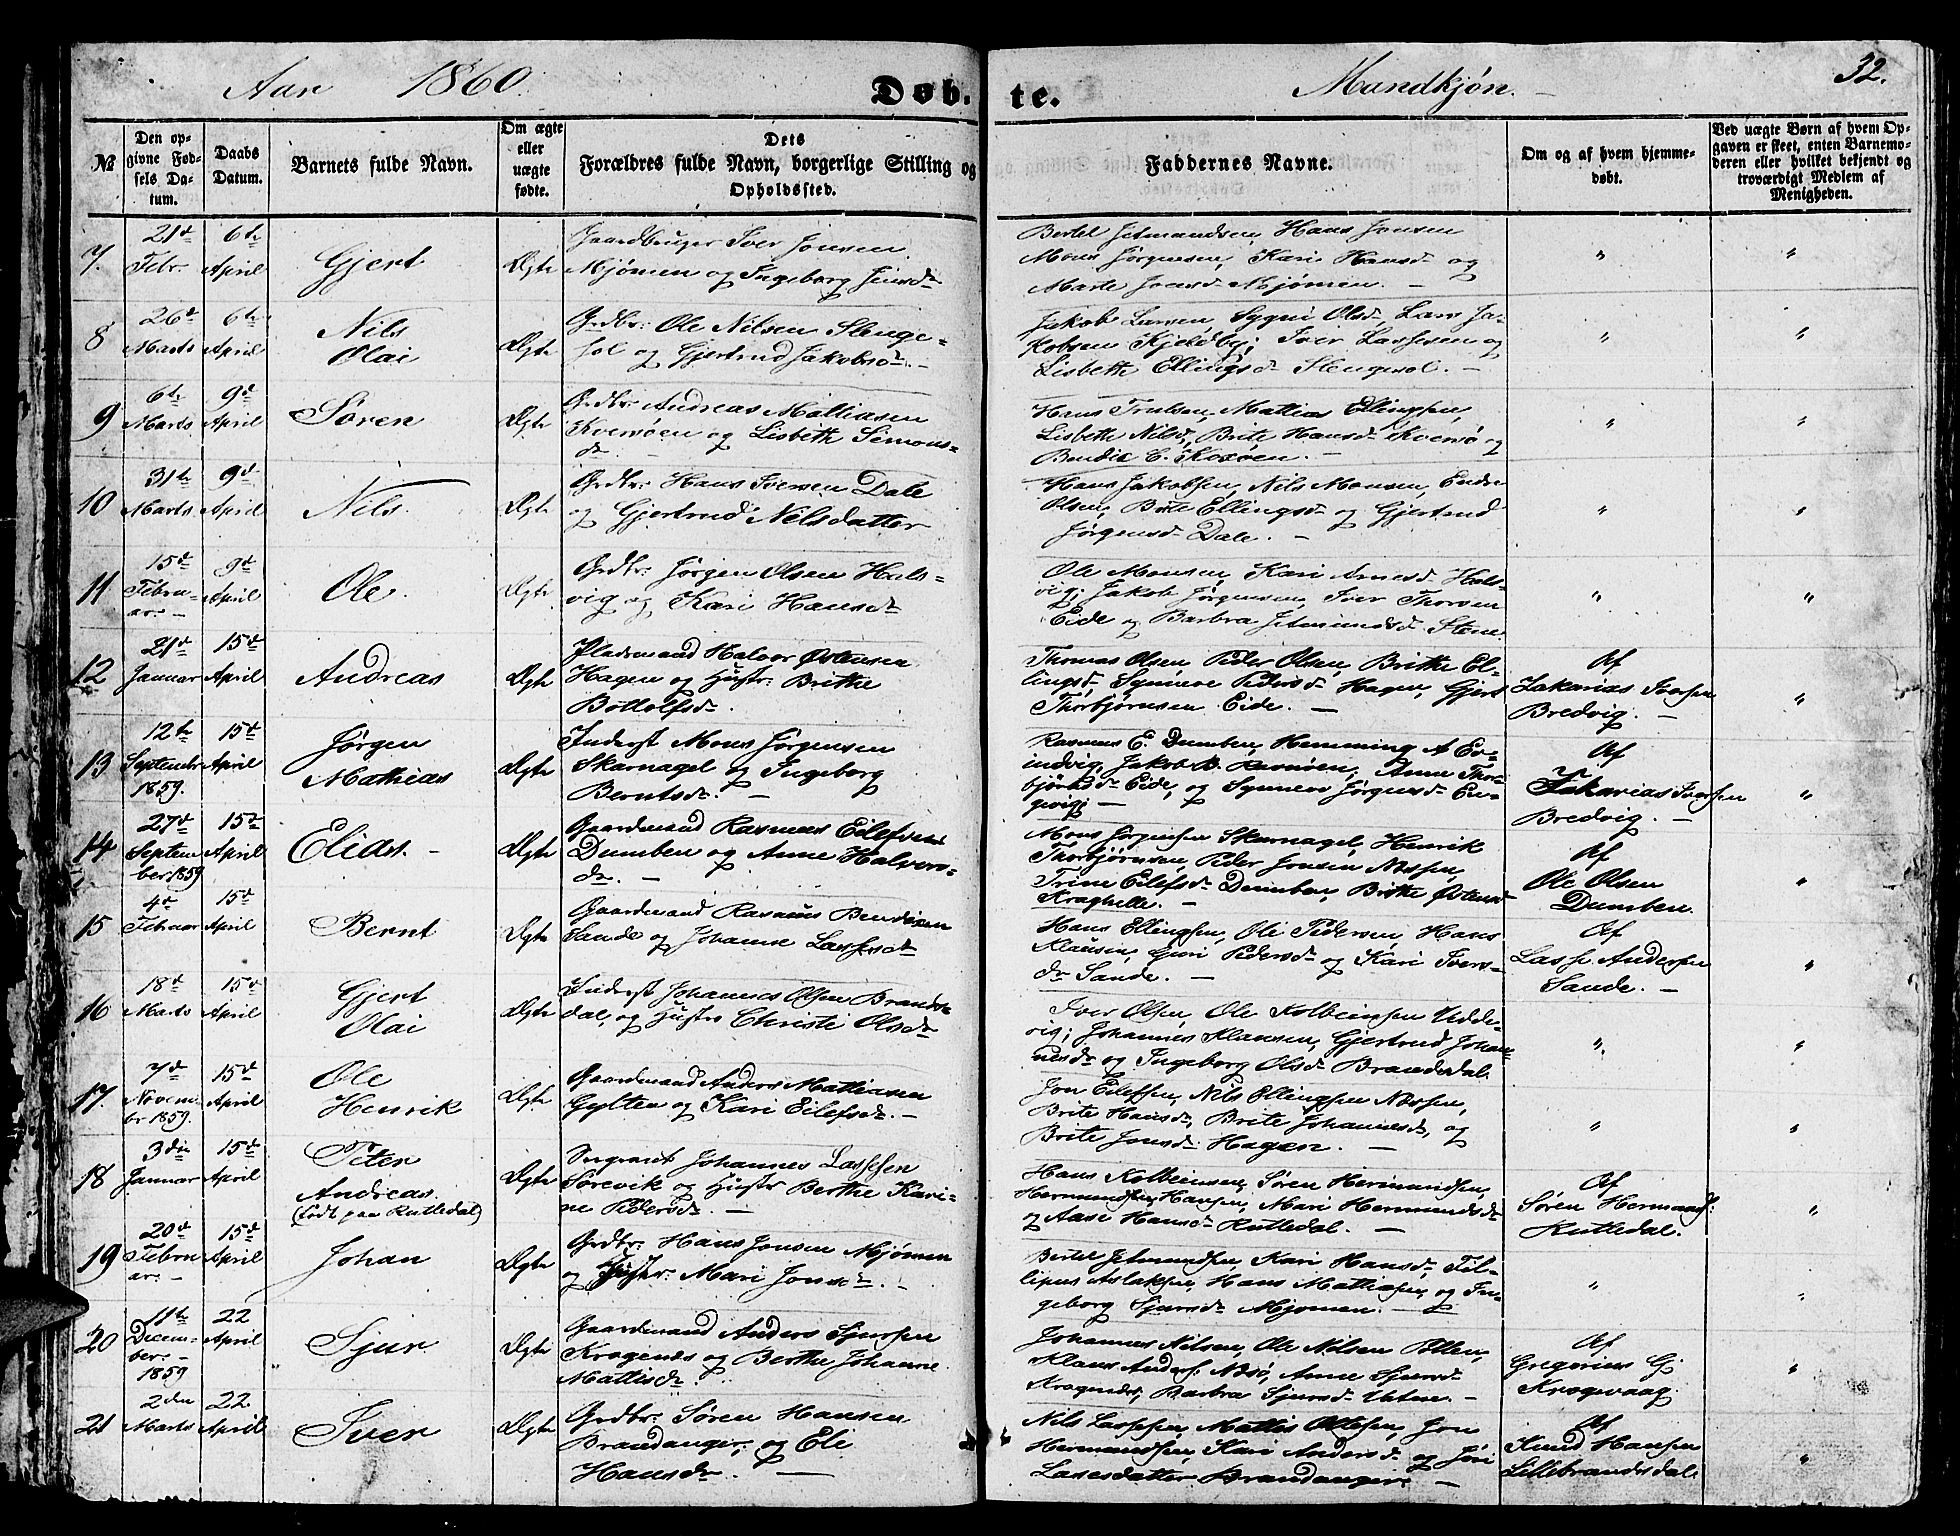 Aar 1860.
Døb-te.
Mandkjøn. -
32.
No
Den op-
givne Fød-
sels Da-
tum.
Daabs
Datum.
Barnets fulde Navn.
Om ægte
eller
uægte
fødte.
Dets
Forældres fulde Navn, borgerlige Stilling og
Opholdssted.
Faddernes Navne.
Om og af hvem hjemme-
døbt.
Ved uægte Børn af hvem Op-
gaven er skeet, enten Barnemo-
deren eller hvilket bekjendt og
troværdigt Medlem af
Menigheden.
7.
21de
Febr.
6te
April
Gjert
Ægte
Gaardbruger Iver Jonsen
Mjømen og Ingeborg Jensdr
Bertel Jetmundsen, Hans Jonsen
Mons Jørgensen, Kari Hansdr og
Marte Jonsdr Mjømen. -
"
"
8
26de
Marts
6te
April
Nils
Olai
Ægte
Grdbr: Ole Nilsen Slenge-
sol og Gjertrud Jakobsdr. -
Jakob Larsen, Sygni Olsdr, Lars Ja-
kobsen Kjeldby; Iver Lassesen og
Lisbeth Ellingsdr Slengesol. -
"
"
9
6te
Marts
9de
April
Søren
Ægte
Grdbr: Andreas Mathiasen
Kversøen og Lisbeth Simons-
dr. -
Hans Trulsen, Mattias Ellingsen,
Lisbeth Nilsdr, Brite Hansdr Kversø og
Bendix C. -
"
"
10
31te
Marts
9de
April
Nils.
Ægte
Grdbr: Hans Iversen Dale
og Gjertrud Nilsdatter
Hans Jakobsen, Nils Monsen, Endre
Olsen, Brite Ellingsdr og Gjertrud
Jørgensdr Dale. -
"
"
11
15de
Febru-
ar. -
9de
April
Ole.
Ægte
Grdbr: Jørgen Olsen Hals-
vig og Kari Hansdr
Ole Monsen, Kari Arnesdr Hals-
vig; Jakob Jørgensen, Iver Thorsen
Eide og Barbra Jetmundsdr Stene.
"
"
12
21de
Januar
15de
April
Andreas
Ægte
Pladsmand Halvor Østensen
Hagen og Hustr: Brithe
Bottolfsdr.
Thomas Olsen, Peder Olsen, Brithe El-
lingsdr, Synneve Pedersdr Hagen, Gjert
Thorbjørnsen Eide. -
Af
Zakarias Iversen
Bredvig. -
"
13
12te
Septembr
1859.
15de
April
Jørgen
Mathias
Ægte
Inderst Mons Jørgensen
Skarnagel og Ingeborg
Berntsdr. -
Rasmus E. Dumben, Hemming A Ev-
indvig, Jakob B. , Anne Thor-
bjørnsdr Eide, og Synneve Jørgensdr Ev-
gvig -
Af
Zakarias Iversen
Bredvig. -
"
14
27de
Septem
ber 1859
15de
April
Elias. -
Ægte
Gaardmand Rasmus Eilefsen
Dumben og Anne Halvors-
dr. -
Mons Jørgensen Skarnagel, Henrik
Thorbjørnsen, Peder Jonsen Nessen,
Trine Eilefsdr Dumben, Brithe Østensdr
Kraghelle. -
Af
Ole Olsen
Dumben.
"
15
4de
Februar
15de
April
Bernt
Ægte
Gaardmand Rasmus Bendixen
Sande og Johanne Lassesdr
Hans Ellingsen, Ole Pedersen, Hans
Klausen, Guri Pedersdr og Kari Ivers-
dr Sande. -
Af
Lasse Andersen
Sande. -
"
16
18de
Marts
15de
April
Gjert
Olai
Ægte
Inderst Johannes Olsen Brands-
dal, og Hustr Christi Olsdr
Iver Olsen, Ole Kolbeinsen Udde-
vig; Johannes Klausen, Gjertrud Johan-
nesdr og Ingeborg Olsdr Brandsdal.
"
"
17.
7de
Novem-
br 1859.
15de
April
Ole
Henrik
Ægte
Gaardmand Anders Mattiasen
Gylten og Kari Eilefsdr. -
Jon Eilefsen, Nils Ellingsen Nessen,
Brite Hansdr, Brite Johannesdr, og
Brite Jonsdr Hagen. -
"
"
18
3die
Januar
15de
April
Peter
Andreas.
(født paa Rutledal)
Ægte
Sergeant Johannes Lassesen
Sørevik og Hustr Berthe Kari-
ne Pedersdr. -
Hans Kolbeinsen, Søren Hermundsen,
Hermund Hansen, Mari Hermundsdr
og Aase Hansdr Rutledal. -
Af
Søren Hermunds:
Rutledal.
"
19
20de
Febru
ar. -
15de
April
Johan
Ægte
Grdbr: Hans Jonsen Mjømen
og Hustr: Mari Jonsdr. -
Bertel Jetmundsen, Kari Hansdr, Fil-
lipus Aslaksen, Hans Mattiasen og In-
geborg Sjursdr Mjømen. -
"
"
20
11te
Decem-
ber. -
1859
22
April
Sjur
Ægte
Gaardmand Anders Sjursen
Kragenes og Berthe Johanne
Mattisdr.
Johannes Nilsen, Ole Nilsen Pollen,
Klaus Anders. Nesø, Anne Sjursdr
Kragenes, Barbra Sjursdr . -
Af
Gregorius Gj
Kragevaag.
"
21
2den
Marts
22
April
Iver
Ægte
Grdbr: Søren Hansen
Brandanger, og Eli
Hansdr. -
Nils Lassesen, Mattis Olsen, Jon
Hermundsen, Kari Andersdr og Jøri
Lassesdatter Brandanger. -
Af
Knud Hansen
Lillebrandsdal
"